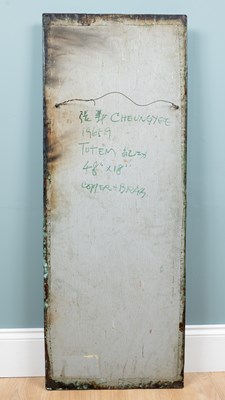 張義 CHEUNG YEE
1965
TOTEM
48" x 18"
COPPER + BRASS